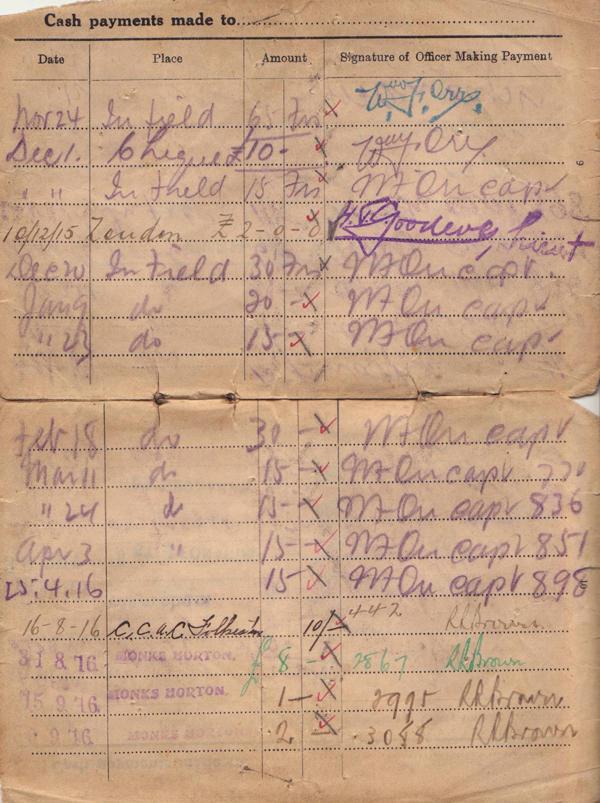 Cash payments made to
Date Place Amount Signature of Officer Making Payment
Nov 24 In field 65 Frs
Dec 1. Cheque £10-
" " In field 15 Frs capt
10/12/15 London £ 2-0-0 Lieut
Dec 20 In Field 30 Frs capt.
Jany 9 do 20 - capt
" 23 do 15 - capt
Feb 18 do 30 - capt
Mar 11 do 15 - capt
" 24 do 15 - capt 836
Apr 3 " 15 - capt 851
25.4.16 15 capt 898
16-8-16 C.C.A.C. Folkestone 10/- 442 Brown
31 8 16 MONKS HORTON. £ 8 - 2867 Brown
15 9 16 MONKS HORTON. 1 - 2995 Brown
9 16 MONKS HORTON 2 3088 Brown